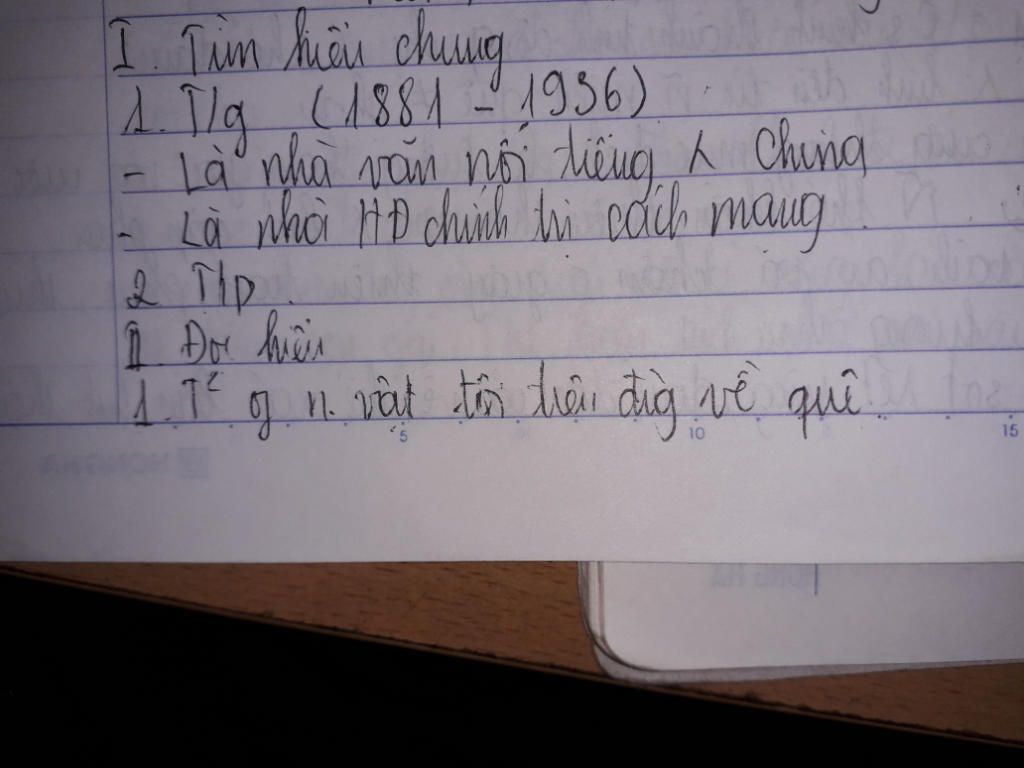 I. Tìm hiểu chung
1. T/g (1881 - 1936)
- Là nhà văn nổi tiếng Chung
- Là nhà HĐ chính trị cách mạng.
2 T/p.
II. Đọc hiểu
1. T² g n. vật tôi trên đg về quê
5 10 15